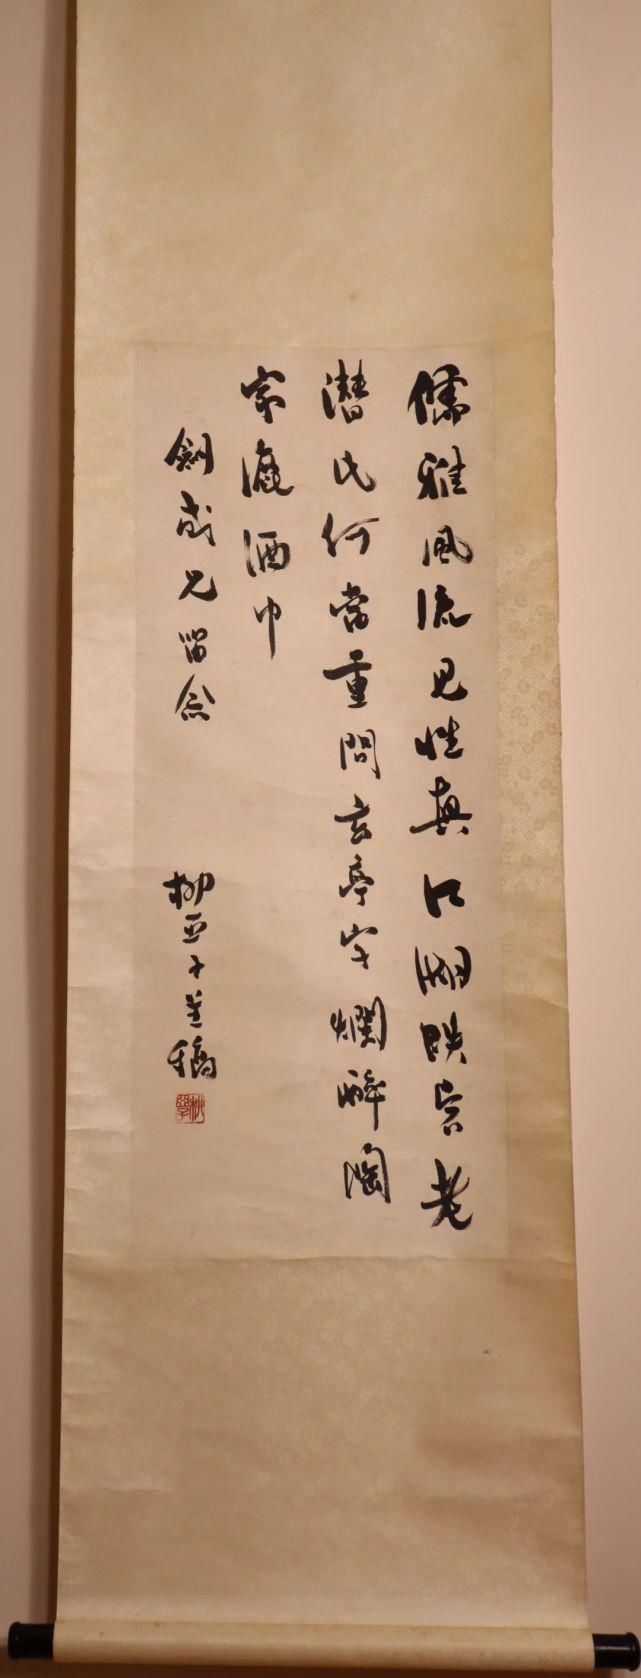 儒雅風流見性真江湖跌宕老
潛民何當重問玄亭字爛醉陶
家漉酒巾
劍成兄留念
柳亞子稿